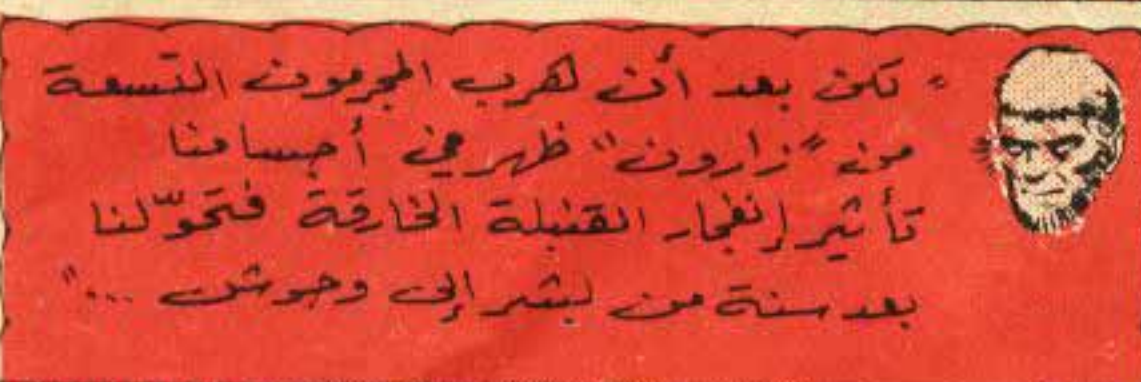 " لكن بعد أن هرب المجرمون التسعة
من "زارون" ظهر في أجسامنا
تأثير إنفجار القنبلة الخارقة فتحوّلنا
بعد سنة من بشر إلى وحوش ..."